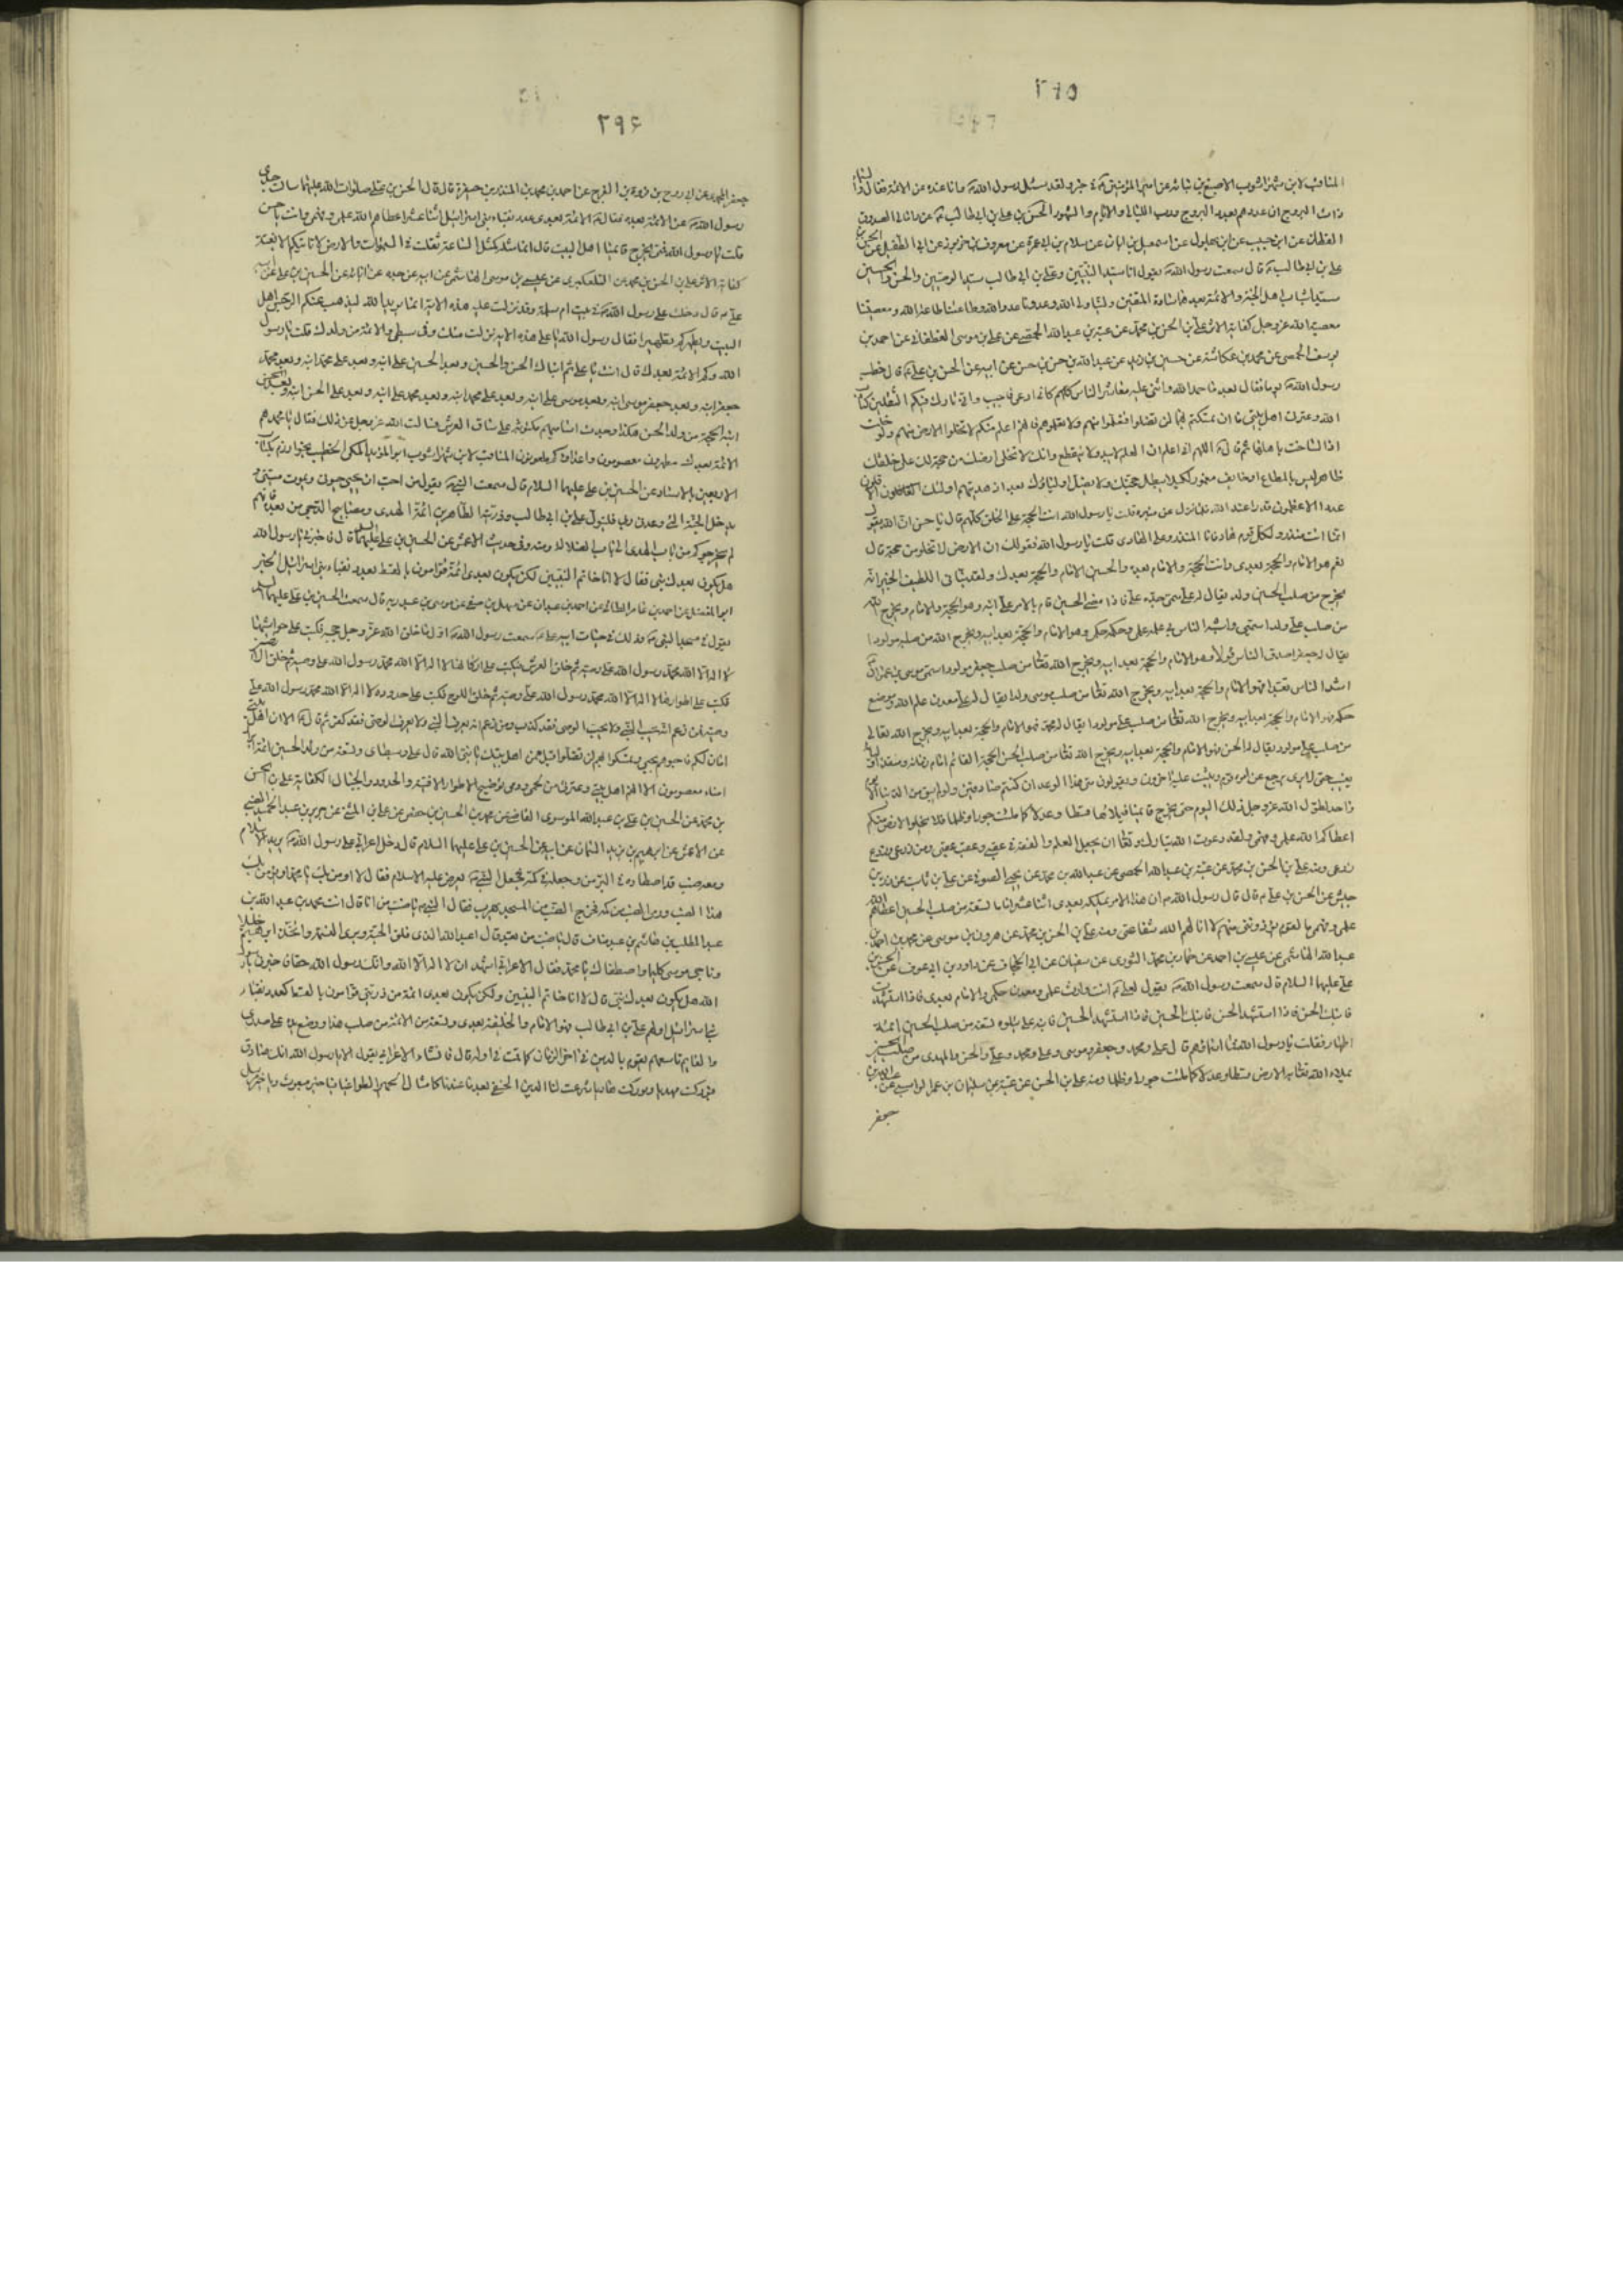 ٢٩٥
المناقب لابن شهراشوب الاصبغ بن نباته عن امير المؤمنين ع في خبر ولقد سئل رسول الله ص وانا عنده عن الائمة فقال والسماء
ذات البروج ان عددهم بعدد البروج ورب الليالي والايام والشهور
علي بن ابي طالب ع قال سمعت رسول الله ص يقول انا سيد النبيين وعلي بن ابي طالب سيد الوصيين والحسن والحسين
سيدا شباب اهل الجنة والائمة بعدهما سادة المتقين ولينا ولي الله وعدونا عدو الله وطاعتنا طاعة الله ومعصيتنا
معصية الله عز وجل كفاية الاثر علي بن الحسن بن محمد عن عتبة بن عبد الله الحمصي عن علي بن موسى الغطفاني عن احمد بن
يوسف الحمصي عن محمد بن عكاشة عن حسين بن زيد عن عبد الله بن حسن بن حسن عن ابيه عن الحسن بن علي ع قال خطب
رسول الله ص يوما فقال بعد ما حمد الله واثنى عليه معاشر الناس كانى ادعى فاجيب واني تارك فيكم الثقلين كتاب
الله وعترتي اهل بيتي ما ان تمسكتم بهما لن تضلوا فتعلموا منهم ولا تعلموهم فانهم اعلم منكم لا تخلوا الارض منهم ولو خلت
اذا لساخت باهلها ثم قال ع اللهم اني اعلم ان العلم لا يبيد ولا ينقطع وانك لا تخلي ارضك من حجة لك على خلقك
ظاهر ليس بالمطاع او خائف مغمور لكيلا يبطل حجتك ولا يضل اولياؤك بعد اذ هديتهم اولئك الاقلون
عددا الاعظمون قدرا عند الله فلما نزل عن منبره قلت يا رسول الله اما انت الحجة على الخلق كلهم قال يا حسن ان الله يقول
انما انت منذر ولكل قوم هاد فانا المنذر وعلي الهادي قلت يا رسول الله فقولك ان الارض لا تخلو من حجة قال
نعم هو الامام والحجة بعدي وانت الحجة والامام بعده والحسين الامام والحجة بعدك ولقد نبأني اللطيف الخبير انه
يخرج من صلب الحسين ولد يقال له علي سمي جده علي فاذا مضى الحسين قام بالامر علي ابنه وهو الحجة والامام ويخرج الله
من صلب علي ولدا سميي واشبه الناس بي علمه علمي وحكمه حكمي وهو الامام والحجة بعد ابيه ويخرج الله من صلبه مولودا
يقال له جعفر اصدق الناس قولا وهو الامام والحجة بعد ابيه ويخرج الله تعالى من صلب جعفر مولودا سمي موسى بن عمران
اشد الناس تعبدا فهو الامام والحجة بعد ابيه ويخرج الله تعالى من صلب موسى ولدا يقال له علي معدن علم الله وموضع
حكمه فهو الامام والحجة بعد ابيه ويخرج الله تعالى من صلب علي مولودا يقال له محمد فهو الامام والحجة بعد ابيه ويخرج الله تعالى
يغيب حتى لا يرى يرجع عن امره قوم ويثبت عليه آخرون ويقولون متى هذا الوعد ان كنتم صادقين ولو لم يبق من الدنيا الا يوم
واحد لطول الله عز وجل ذلك اليوم حتى يخرج قائمنا فيملاها قسطا وعدلا كما ملئت جورا وظلما فلا تخلوا الارض منكم
اعطاكم الله علمي وفهمي ولقد دعوت الله تبارك وتعالى ان يجعل العلم والفقه في عقبي وعقب عقبي ومن زرعي وزرع
زرعي ومنه علي بن الحسن بن محمد عن عتبة بن عبد الله الحمصي عن عبد الله بن محمد عن يحيى الصوفي عن علي بن ثابت عن زر بن
حبيش عن الحسن بن علي ع قال قال رسول الله ص ان هذا الامر يملكه بعدي اثنا عشر اماما تسعة من صلب الحسين اعطاهم الله
علمي وفهمي ما لقوم يؤذونني فيهم لا انالهم الله شفاعتي ومنه علي بن الحسن بن محمد عن هرون بن موسى عن محمد بن احمد بن
عبد الله الهاشمي عن عيسى بن احمد عن عمار بن محمد الثوري عن سفيان عن ابي الجحاف عن داود بن ابي عوف عن الحسن بن
علي عليهما السلام قال سمعت رسول الله ص يقول لعلي ع انت وارث علمي ومعدن حكمي والامام بعدي فاذا استشهدت
فابنك الحسن فاذا استشهد الحسن فابنك الحسين فاذا استشهد الحسين فابنه علي يتلوه تسعة من صلب الحسين ائمة
اطهار فقلت يا رسول الله فما اسماؤهم قال علي ومحمد وجعفر وموسى وعلي ومحمد وعلي والحسن والمهدي من صلب الحسين
يملاء الله تعالى به الارض قسطا وعدلا كما ملئت جورا وظلما ومنه علي بن الحسن عن عتبة بن سليمان بن عمر الراسبي عن عبد الله بن
جعفر
٢٩۶
جعفر المحمدي عن ابي روح بن فروة بن الفرج عن احمد بن محمد بن المنذر بن جيفر قال قال الحسن بن علي صلوات الله عليهما سالت جدي
رسول الله ص عن الائمة بعده فقال ص الائمة بعدي عدد نقباء بني اسرائيل اثنا عشر اعطاهم الله علمي وفهمي وانت يا حسن
قلت يا رسول الله فمتى يخرج قائمنا اهل البيت قال انما مثله كمثل الساعة ثقلت في السموات والارض لا تاتيكم الا بغتة
كفاية الاثر علي بن الحسن بن محمد عن التلعكبري عن عيسى بن موسى الهاشمي عن ابيه عن جده عن آبائه عن الحسين بن علي عن
علي ع قال دخلت على رسول الله ص في بيت ام سلمة وقد نزلت عليه هذه الاية انما يريد الله ليذهب عنكم الرجس اهل
البيت ويطهركم تطهيرا فقال رسول الله يا علي هذه الاية نزلت فيك وفي سبطي والائمة من ولدك قلت يا رسول
الله وكم الائمة بعدك قال انت يا علي ثم ابناك الحسن والحسين وبعد الحسين علي ابنه وبعد علي محمد ابنه وبعد محمد
جعفر ابنه وبعد جعفر موسى ابنه وبعد موسى علي ابنه وبعد علي محمد ابنه وبعد محمد علي ابنه وبعد علي الحسن ابنه وبعد الحسن
ابنه الحجة من ولد الحسن هكذا وجدت اساميهم مكتوبة على ساق العرش فسالت الله عز وجل عن ذلك فقال يا محمد هم
الائمة بعدك مطهرون معصومون واعداؤكم ملعونون المناقب لابن شهراشوب
الاربعين بالاسناد عن الحسين بن علي عليهما السلام قال سمعت النبي ص يقول من احب ان يحيى حيوتي ويموت ميتتي و
يدخل الجنة التي وعدني ربي فليتول علي بن ابي طالب وذريته الطاهرين ائمة الهدى ومصابيح الدجى من بعده فانهم
لن يخرجوكم من باب الهدى الى باب الضلالة ومنه وفي حديث الاعمش عن الحسين بن علي عليهما السلام قال فاخبرني يا رسول الله
هل يكون بعدك نبي فقال لا انا خاتم النبيين لكن يكون بعدي ائمة قوامون بالقسط بعدد نقباء بني اسرائيل الخبر
ابو المفضل عن احمد بن عامر الطائي عن احمد بن عبدان عن سهل بن صيفي عن موسى بن عبد ربه قال سمعت الحسين بن علي عليهما السلام
يقول في مسجد النبي ص وذلك في حيات ابيه علي ع سمعت رسول الله ص اول ما خلق الله عز وجل حجبه فكتب على حواشيها
لا اله الا الله محمد رسول الله علي وصيه ثم خلق العرش فكتب على اركانه لا اله الا الله محمد رسول الله علي وصيه ثم خلق الارضين
فكتب على اطوارها لا اله الا الله محمد رسول الله علي وصيه ثم خلق اللوح فكتب على حدوده لا اله الا الله محمد رسول الله علي
وصيه فمن زعم انه يحب النبي ولا يحب الوصي فقد كذب ومن زعم انه يعرف النبي ولا يعرف الوصي فقد كفر ثم قال ص الا ان اهل بيتي
امان لكم فاحبوهم بحبي وتمسكوا بهم لن تضلوا قيل فمن اهل بيتك يا نبي الله قال علي وسبطاي وتسعة من ولد الحسين ائمة
امناء معصومون الا انهم اهل بيتي وعترتي من لحمي ودمي
بن محمد عن الحسين بن علي بن عبد الله الموسوي القاضي عن محمد بن الحسين بن حفص عن علي بن المثنى عن جرير بن عبد الحميد الضبي
عن الاعمش عن ابرهيم بن يزيد السمان عن ابيه عن الحسين بن علي عليهما السلام قال دخل اعرابي على رسول الله ص يريد الاسلام
ومعه ضب قد اصطاده في البرية وجعله في كمه فجعل النبي ص يعرض عليه الاسلام فقال لا اومن بك يا محمد او يؤمن بك
هذا الضب ورمى الضب من كمه فخرج الضب من المسجد يهرب فقال النبي ص يا ضب من انا قال انت محمد بن عبد الله بن
عبد المطلب بن هاشم بن عبد مناف قال يا ضب من تعبد قال اعبد الله الذي فلق الحبة وبرئ النسمة واتخذ ابرهيم خليلا
وناجى موسى كليما واصطفاك يا محمد فقال الاعرابي اشهد ان لا اله الا الله وانك رسول الله حقا فاخبرني يا رسول
الله هل يكون بعدك نبي قال لا انا خاتم النبيين ولكن يكون بعدي ائمة من ذريتي قوامون بالقسط كعدد نقباء
بني اسرائيل اولهم علي بن ابي طالب فهو الامام والخليفة بعدي وتسعة من الائمة من صلب هذا ووضع يده على صدري
والقايم تاسعهم يقوم بالدين في اخر الزمان كما قمت في اوله قال فانشاء الاعرابي يقول الا يا رسول الله انك صادق
فبوركت مهديا وبوركت هاديا شرعت لنا الدين الحنيفي بعدما عبدنا كامثال الحمير الطواغيا